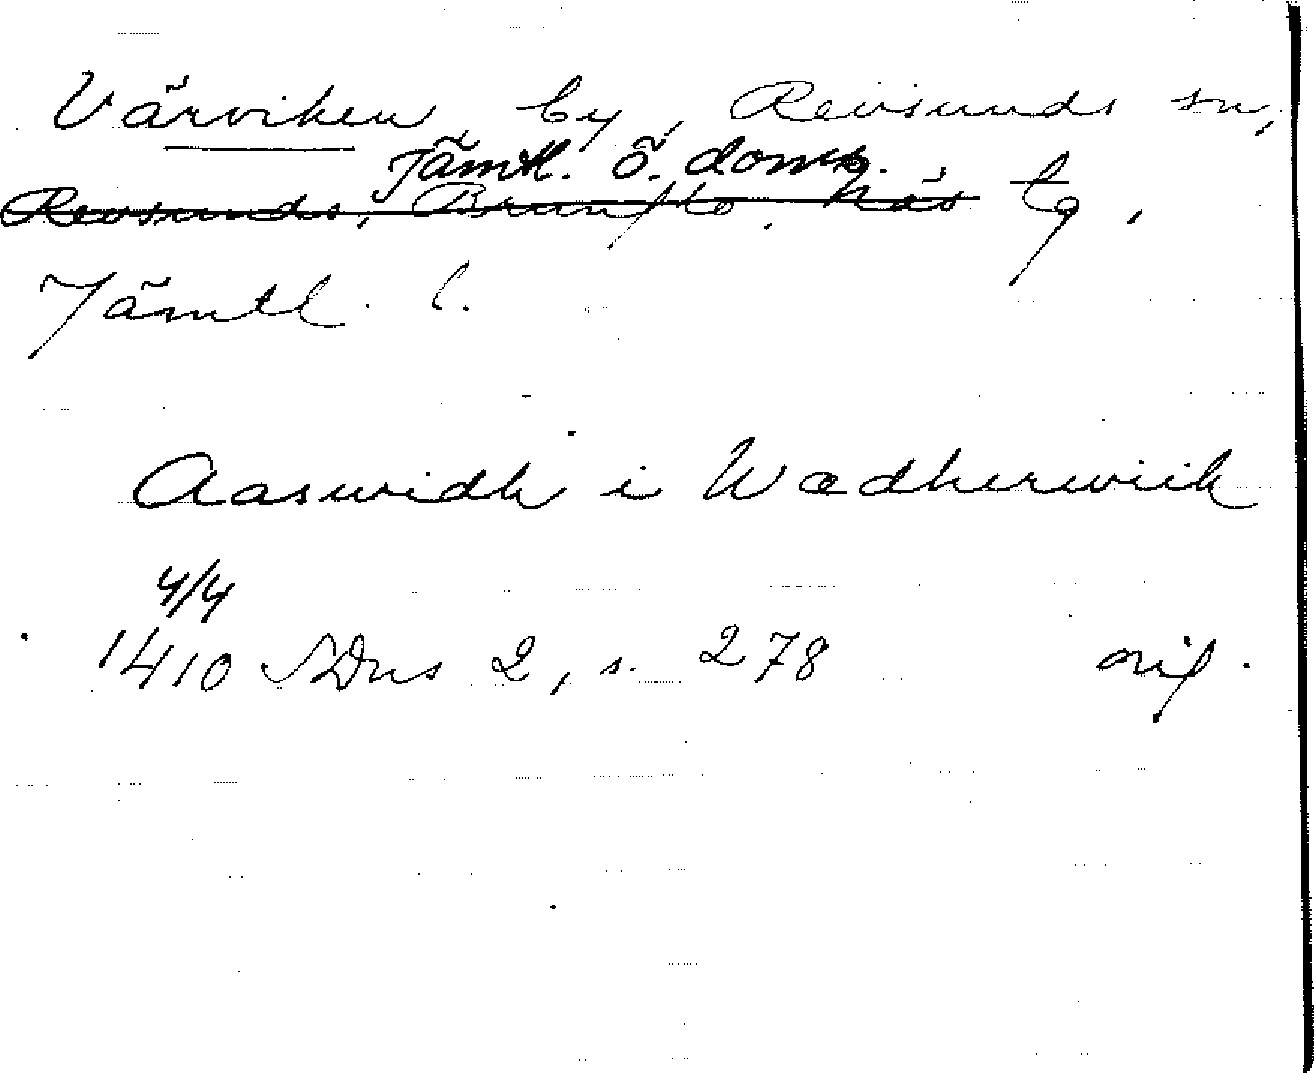 Värviken, by, Revsunds sn,
Jämtl. ö. doms.
Revsunds, Brunflo, Näs tg,
Jämtl. l.
Aaswidh i Wædherwiik
4/4
1410 SDns 2, s. 278